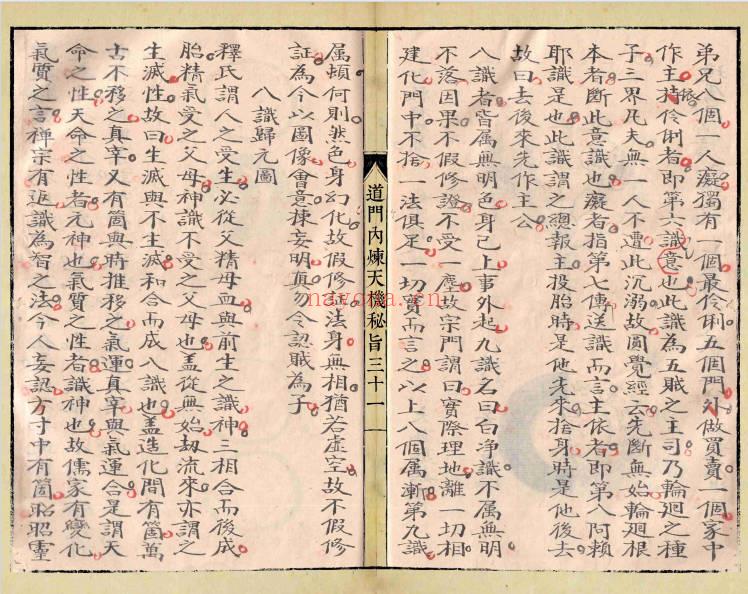 弟兄八個一人癡獨有一個最伶俐五個門外做買賣一個家中
作主依持伶俐者即第六識意也此識為五賊之主司乃輪廻之種
子三界凡夫無一人不遭此沉溺故圓覺經云先斷無始輪廻根
本者斷此意識也癡者指第七傳送識而言主依者即第八阿賴
耶識是也此識謂之總報主投胎時是他先來捨身時是他後去
故曰去後來先作主公
八識者皆属無明色身已上事外起九識名曰白净識不属無明
不落因果不假修證不受一塵故宗門謂曰實際理地離一切相
建化門中不捨一法俱足一切寶而言之以上八個属漸第九識
道門內煉天機秘旨三十一
属頓何則然色身幻化故假修証法身無相猶若虛空故不假修
証為今以圖像會意棟妄明真勿令認賊為子
八識歸元圖
釋氏謂人之受生必從父精母血與前生之識神三相合而後成
胎精氣受之父母神識不受之父母也盖從無始刼流來亦謂之
生滅性故曰生滅與不生滅和合而成八識也盖造化間有箇萬
古不移之真宰又有箇與時推移之氣運真宰與氣運合是謂天
命之性天命之性者元神也氣質之性者識神也故儒家有變化
氣質之言禪宗有返識為智之法今人妄認方寸中有箇昭昭靈
navoma.cn